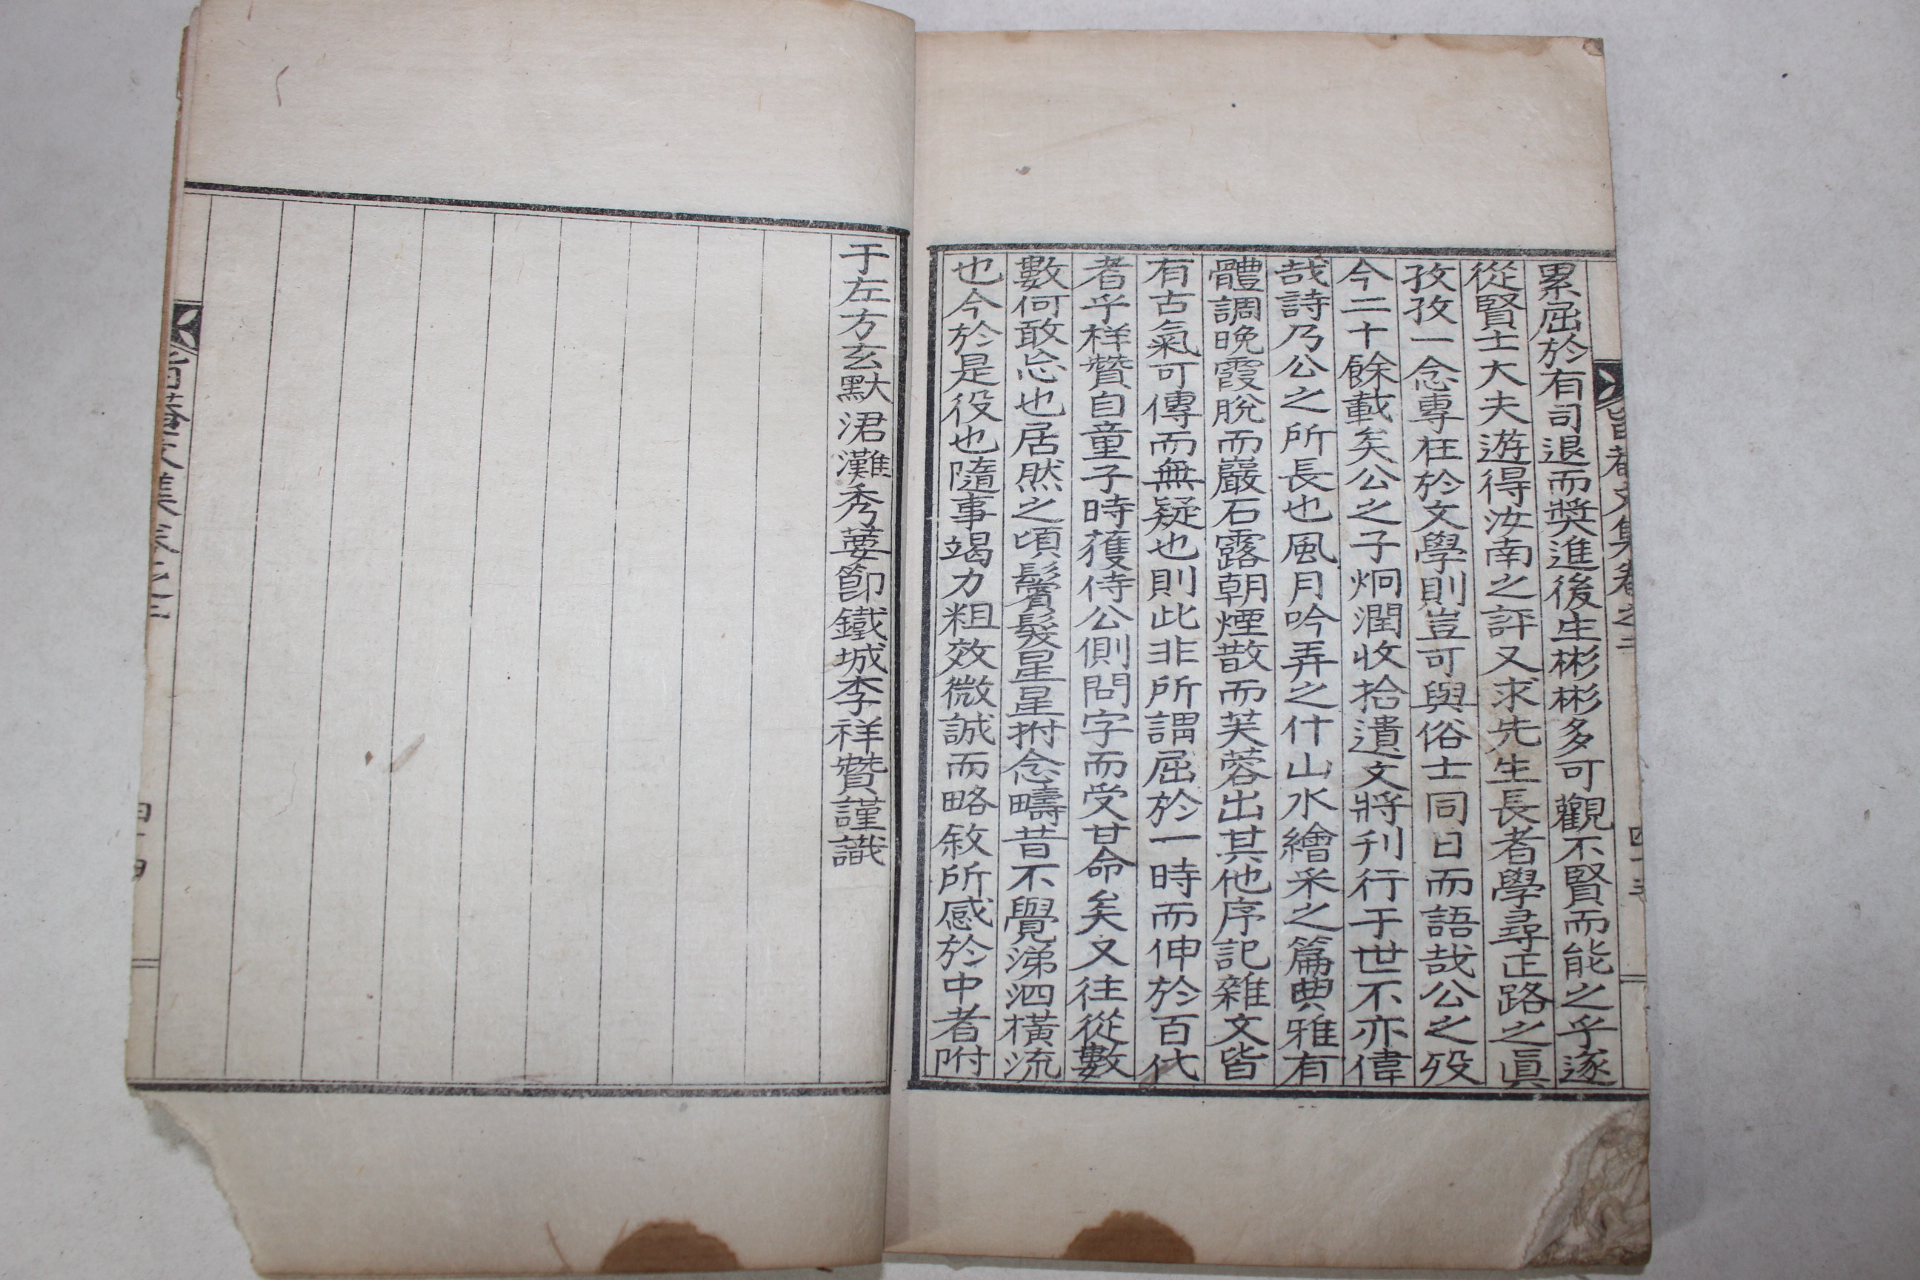 累屈於有司退而獎進後生彬彬多可觀不賢而能之乎逐
從賢士大夫遊得汝南之評又求先生長者學尋正路之眞
孜孜一念專在於文學則豈可與俗士同日而語哉公之歿
今二十餘載矣公之子炯潤收拾遺文將刊行于世不亦偉
哉詩乃公之所長也風月吟弄之什山水繪采之篇典雅有
體調晩霞脫而巖石露朝煙散而芙蓉出其他序記雜文皆
有古氣可傳而無疑也則此非所謂屈於一時而伸於百代
者乎祥贊自童子時獲侍公側問字而受甘命矣又往從數
數何敢忘也居然之頃鬢髮星星拊念疇昔不覺涕泗橫流
也今於是役也隨事竭力粗效微誠而略敘所感於中者附
于左方玄默涒灘秀葽節鐵城李祥贊謹識
文集卷之二
文集卷之二
四十四